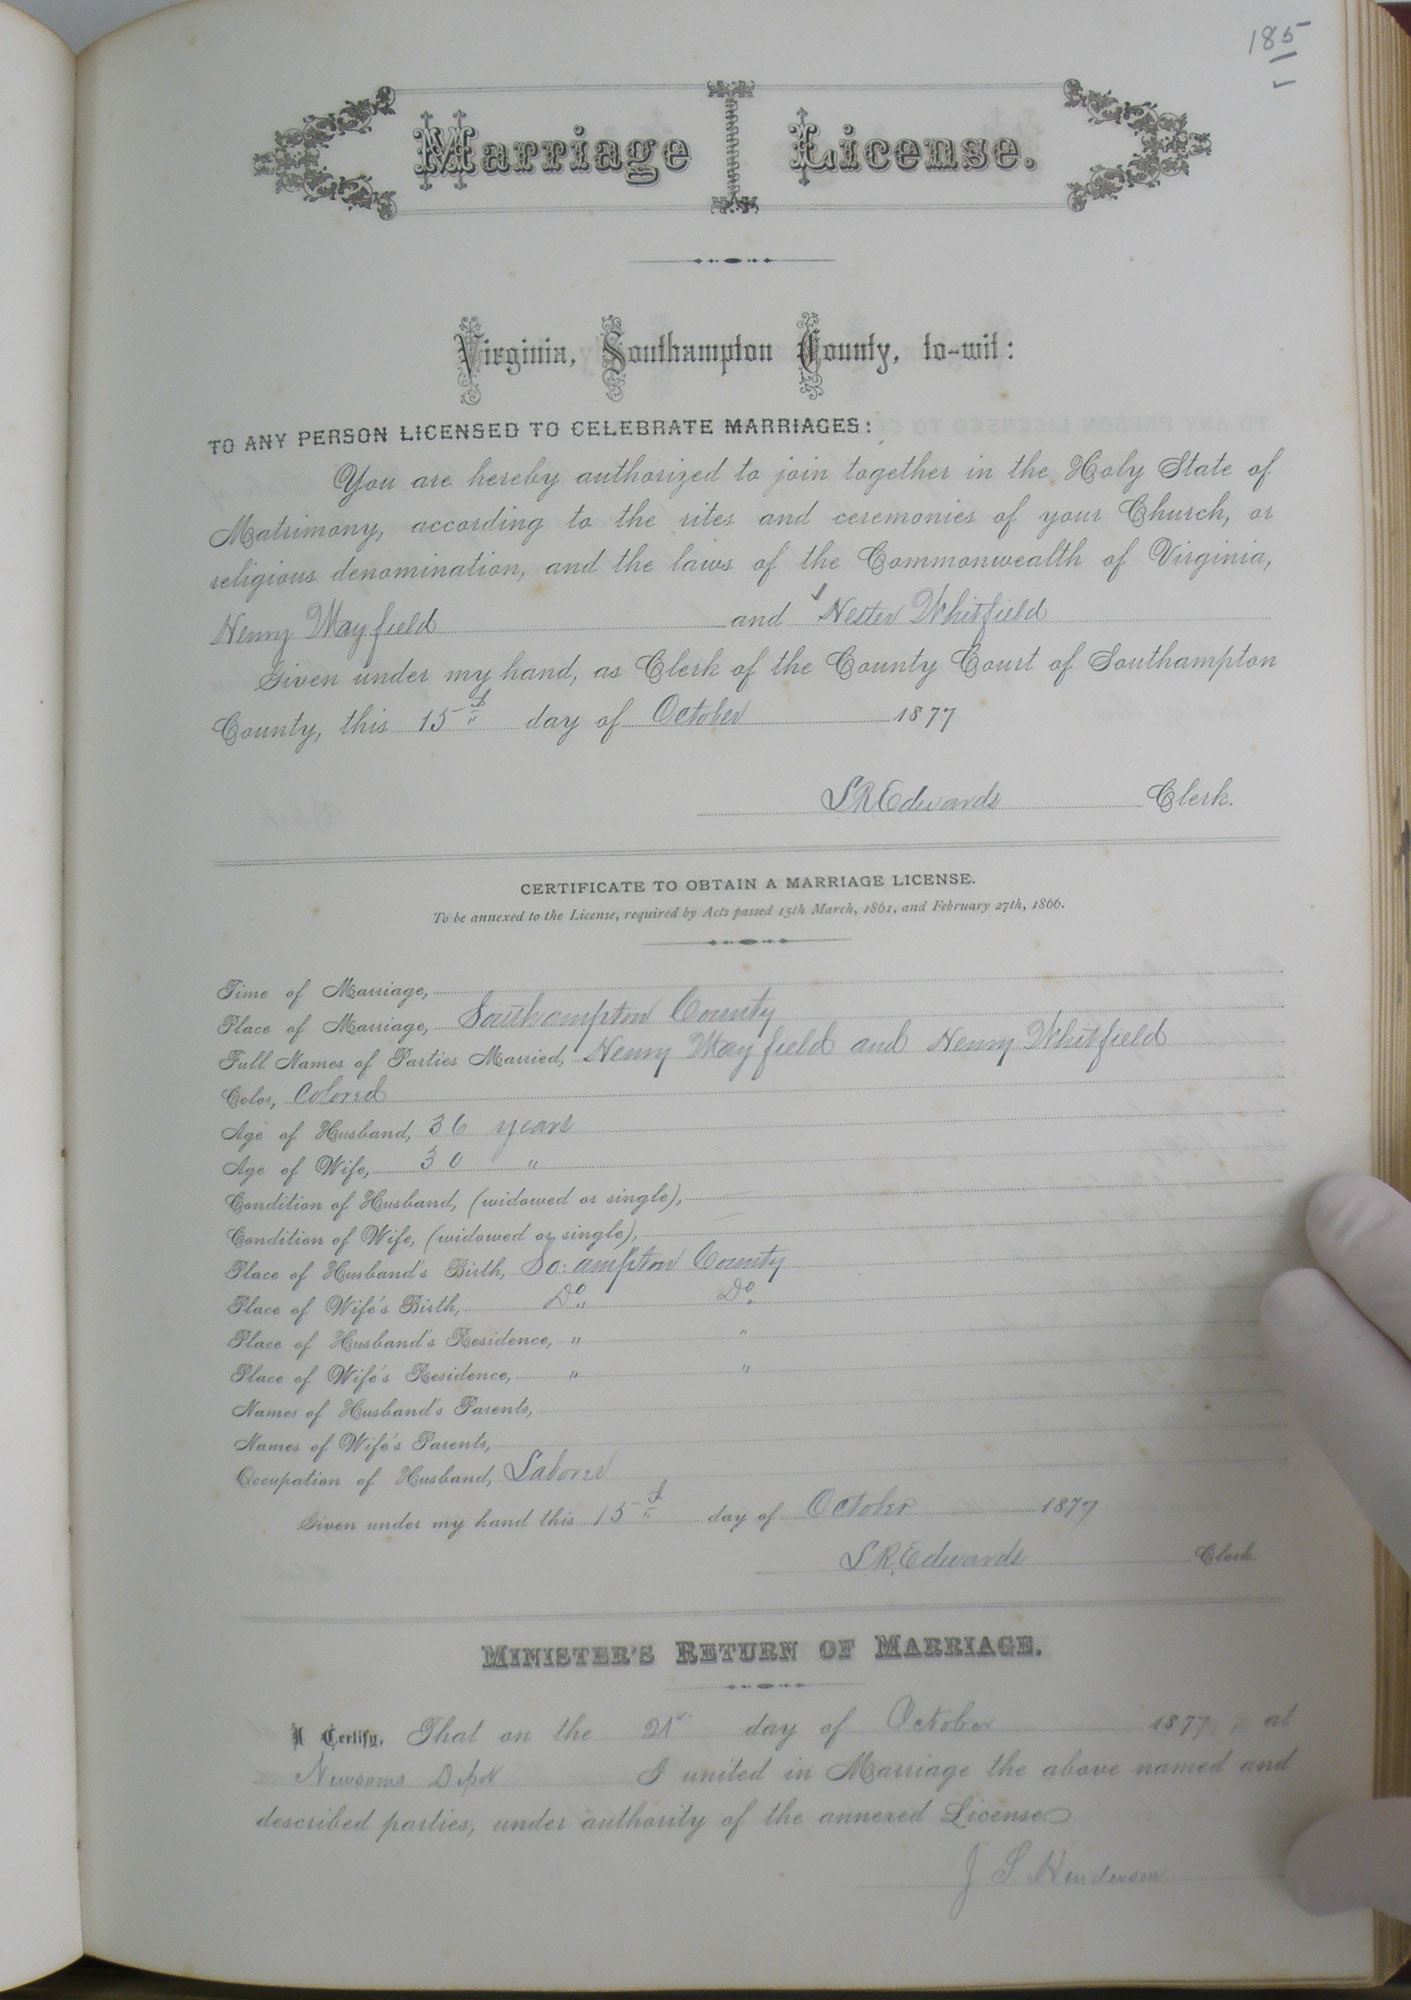 185
Marriage License.
Virginia, Southampton County, to-wit:
TO ANY PERSON LICENSED TO CELEBRATE MARRIAGES:
You are hereby authorized to join together in the Holy State of
Matrimony, according to the rites and ceremonies of your Church, or
religious denomination, and the laws of the Commonwealth of Virginia,
Henry Mayfield and Hester Whitfield
Given under my hand, as Clerk of the County Court of Southampton
County, this 15th day of October 1877
L R Edwards Clerk.
CERTIFICATE TO OBTAIN A MARRIAGE LICENSE.
To be annexed to the License, required by Acts passed 15th March, 1861, and February 27th, 1866.
Time of Marriage,
Place of Marriage, Southampton County
Full Names of Parties Married, Henry Mayfield and Henry Whitfield
Color, Colored
Age of Husband, 36 years
Age of Wife, 30 "
Condition of Husband, (widowed or single),
Condition of Wife, (widowed or single),
Place of Husband's Birth, So:ampton County
Place of Wife's Birth, Do Do
Place of Husband's Residence, " "
Place of Wife's Residence, " "
Names of Husband's Parents,
Names of Wife's Parents,
Occupation of Husband, Laborer
Given under my hand this 15th day of October 1877
L R Edwards Clerk
MINISTER'S RETURN OF MARRIAGE.
I Certify, That on the 21st day of October 1877, at
Newsoms Depot I united in Marriage the above named and
described parties, under authority of the annexed License.
J. S. Henderson